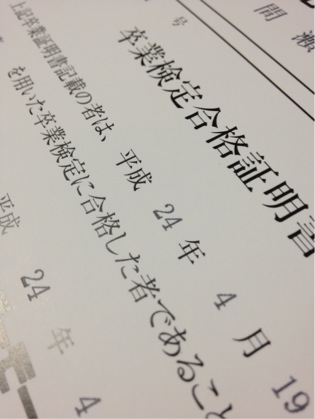 間瀬
号
卒業検定合格証明書
上記卒業証明書記載の者は、平成 24 年 4 月 19
を用いた卒業検定に合格した者であること
平成 24 年 4
モー